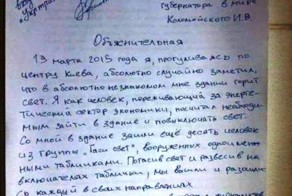 губернатора в мире
Коломойского И.В.
Обяснительная
19 марта 2015 года я, прогуливаясь по
центру Киева, абсолютно случайно заметил,
что в абсолютно незнакомом мне здании горит
свет. Я как человек, переживающий за энерге-
тический сектор экономики, посчитал необходи-
мым зайти в здание и повыключать свет.
Со мной в здание зашли ещё десять человек
из группы "Гаси свет", вооруженных одноимен-
ными табличками. Погасив свет и развесив на
включателях таблички, мы вышли и разошлись
каждый в своих направлениях